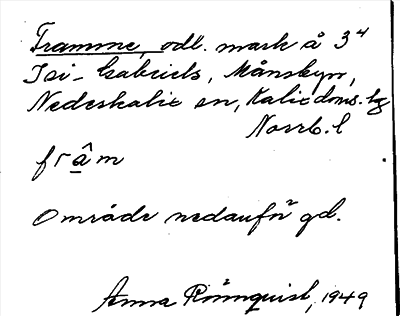 Framme, odl. mark å 3⁴
Isi-Gabriels, Månsbyn,
Nederkalix sn, Kalix doms. hg
Norrb. l
frâm
Område nedanför gd.
Anna Rönnquist, 1949